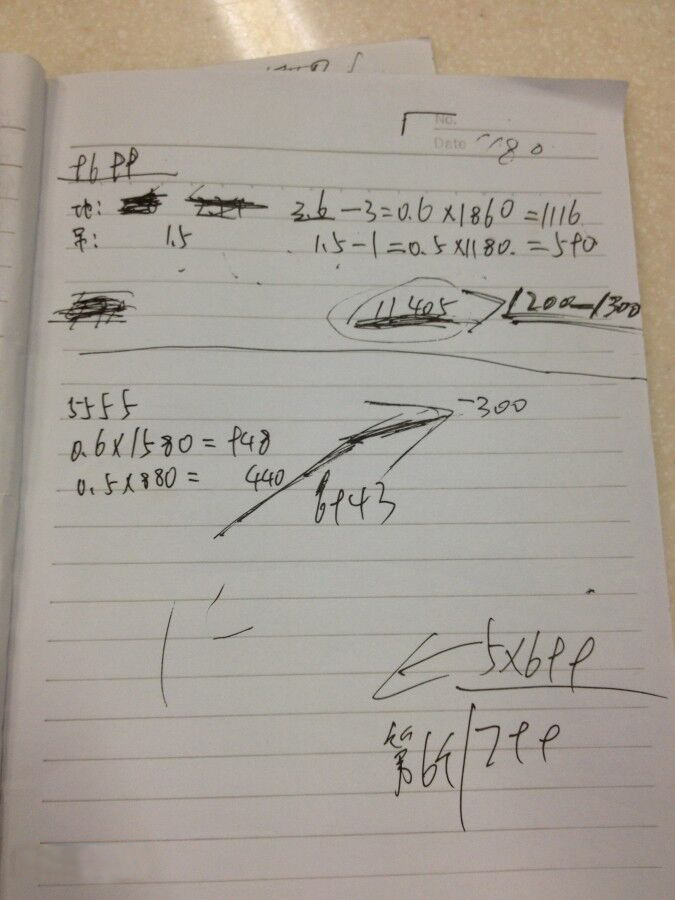 No.
Date 180
9699
地: 3.6-3=0.6×1860=1116
吊: 1.5 1.5-1=0.5×1180.=590
11405 1200-1300
5555
0.6×1580=948 -300
0.5×880= 440
6943
5×699
第6个/799